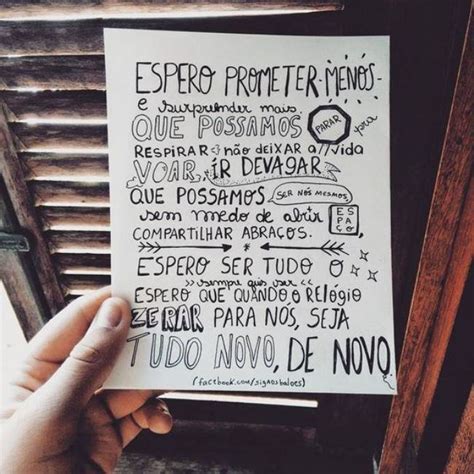 ESPERO PROMETER MENOS
e surpreender mais.
QUE POSSAMOS PARAR pra
RESPIRAR e não deixar a vida
VOAR, IR DEVAGAR.
QUE POSSAMOS SER NÓS MESMOS,
sem medo de abrir ESPAÇO,
COMPARTILHAR ABRAÇOS.
ESPERO SER TUDO O
sempre quis ser
ESPERO QUE QUANDO O RELÓGIO
ZERAR PARA NÓS, SEJA
TUDO NOVO, DE NOVO
(facebook.com/signosbaloes)